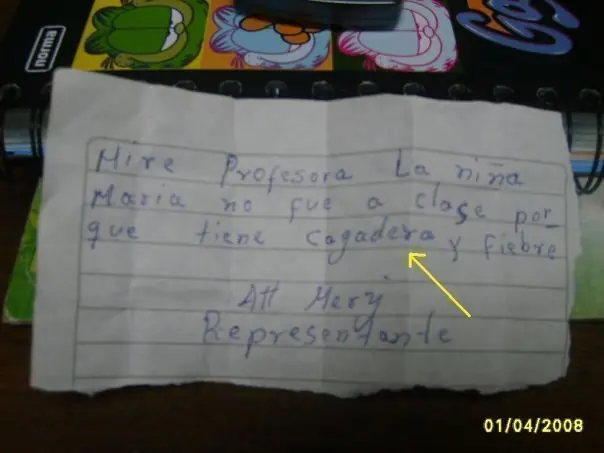 norma
Mire Profesora La niña
Maria no fue a clase por
que tiene cagadera y fiebre
Att Mery
Representante
01/04/2008